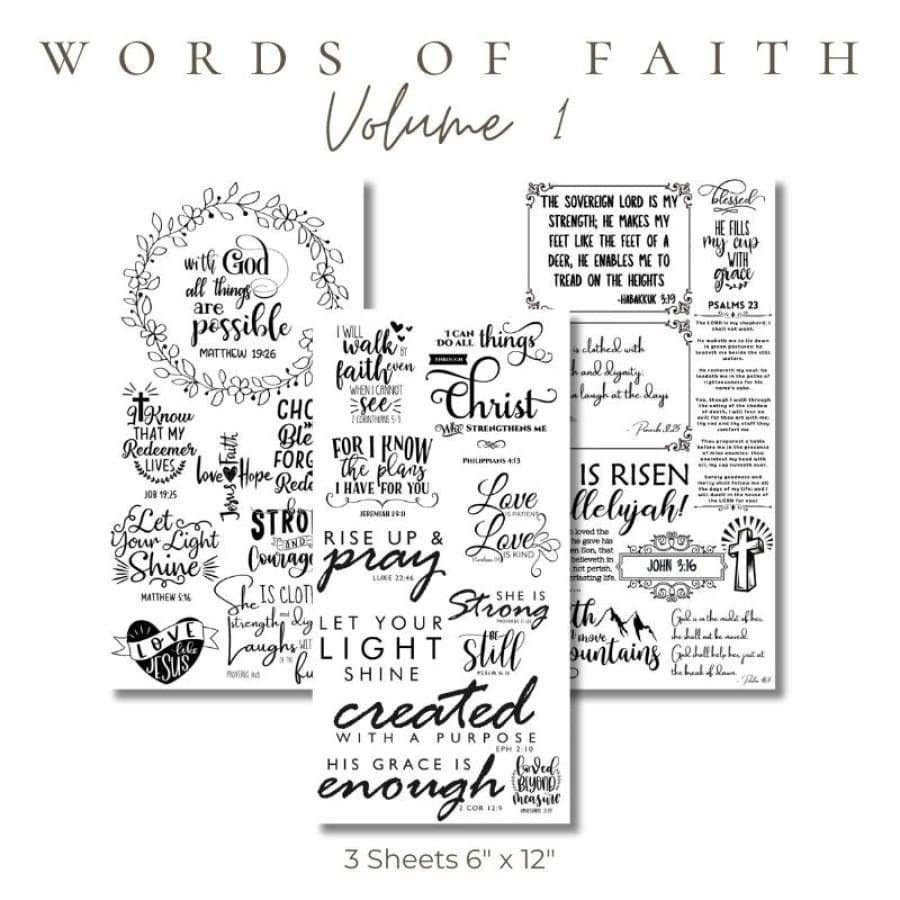 WORDS OF FAITH
Volume 1
with God
all things
are
possible
MATTHEW 19:26
I Know
THAT MY
Redeemer
LIVES
JOB 19:25
love Hope
Faith
Jesus
CHO
Ble
FORG
Rede
Let
Your Light
Shine
MATTHEW 5:16
STRO
AND
Courage
She IS CLOT
strength and dig
Laughs WIT
OF THE
fu
PROVERBS 31:25
LOVE
like
JESUS
I WILL
walk BY
faith even
WHEN I CANNOT
see
2 CORINTHIANS 5:7
FOR I KNOW
the plans
I HAVE FOR YOU
JEREMIAH 29:11
RISE UP &
pray
LUKE 22:46
LET YOUR
LIGHT
SHINE
I CAN
DO ALL things
THROUGH
Christ
WHO STRENGTHENS ME
PHILIPPIANS 4:13
Love
IS PATIENT
Love
IS KIND
SHE IS
Strong
PROVERBS 31:25
BE
Still
PSALM 46:10
created
WITH A PURPOSE
EPH 2:10
HIS GRACE IS
enough
2 COR 12:9
loved
BEYOND
measure
THE SOVEREIGN LORD IS MY
STRENGTH; HE MAKES MY
FEET LIKE THE FEET OF A
DEER, HE ENABLES ME TO
TREAD ON THE HEIGHTS
-HABAKKUK 3:19
is clothed with
h and dignity;
laugh at the days
- Proverbs 31:25
IS RISEN
llelujah!
loved the
he gave his
en Son, that
believeth in
not perish,
erlasting life.
JOHN 3:16
th
move
ountains
blessed
HE FILLS
my cup
WITH
grace
PSALMS 23
The LORD is my shepherd; I
shall not want.
He maketh me to lie down
in green pastures: he
leadeth me beside the still
waters.
He restoreth my soul: he
leadeth me in the paths of
righteousness for his
name's sake.
Yea, though I walk through
the valley of the shadow
of death, I will fear no
evil: for thou art with me;
thy rod and thy staff they
comfort me
Thou preparest a table
before me in the presence
of mine enemies: thou
anointest my head with
oil; my cup runneth over.
Surely goodness and
mercy shall follow me all
the days of my life: and I
will dwell in the house of
the LORD for ever
God is in the midst of her,
she shall not be moved.
God shall help her, just at
the break of dawn.
- Psalm 46:5
3 Sheets 6" x 12"